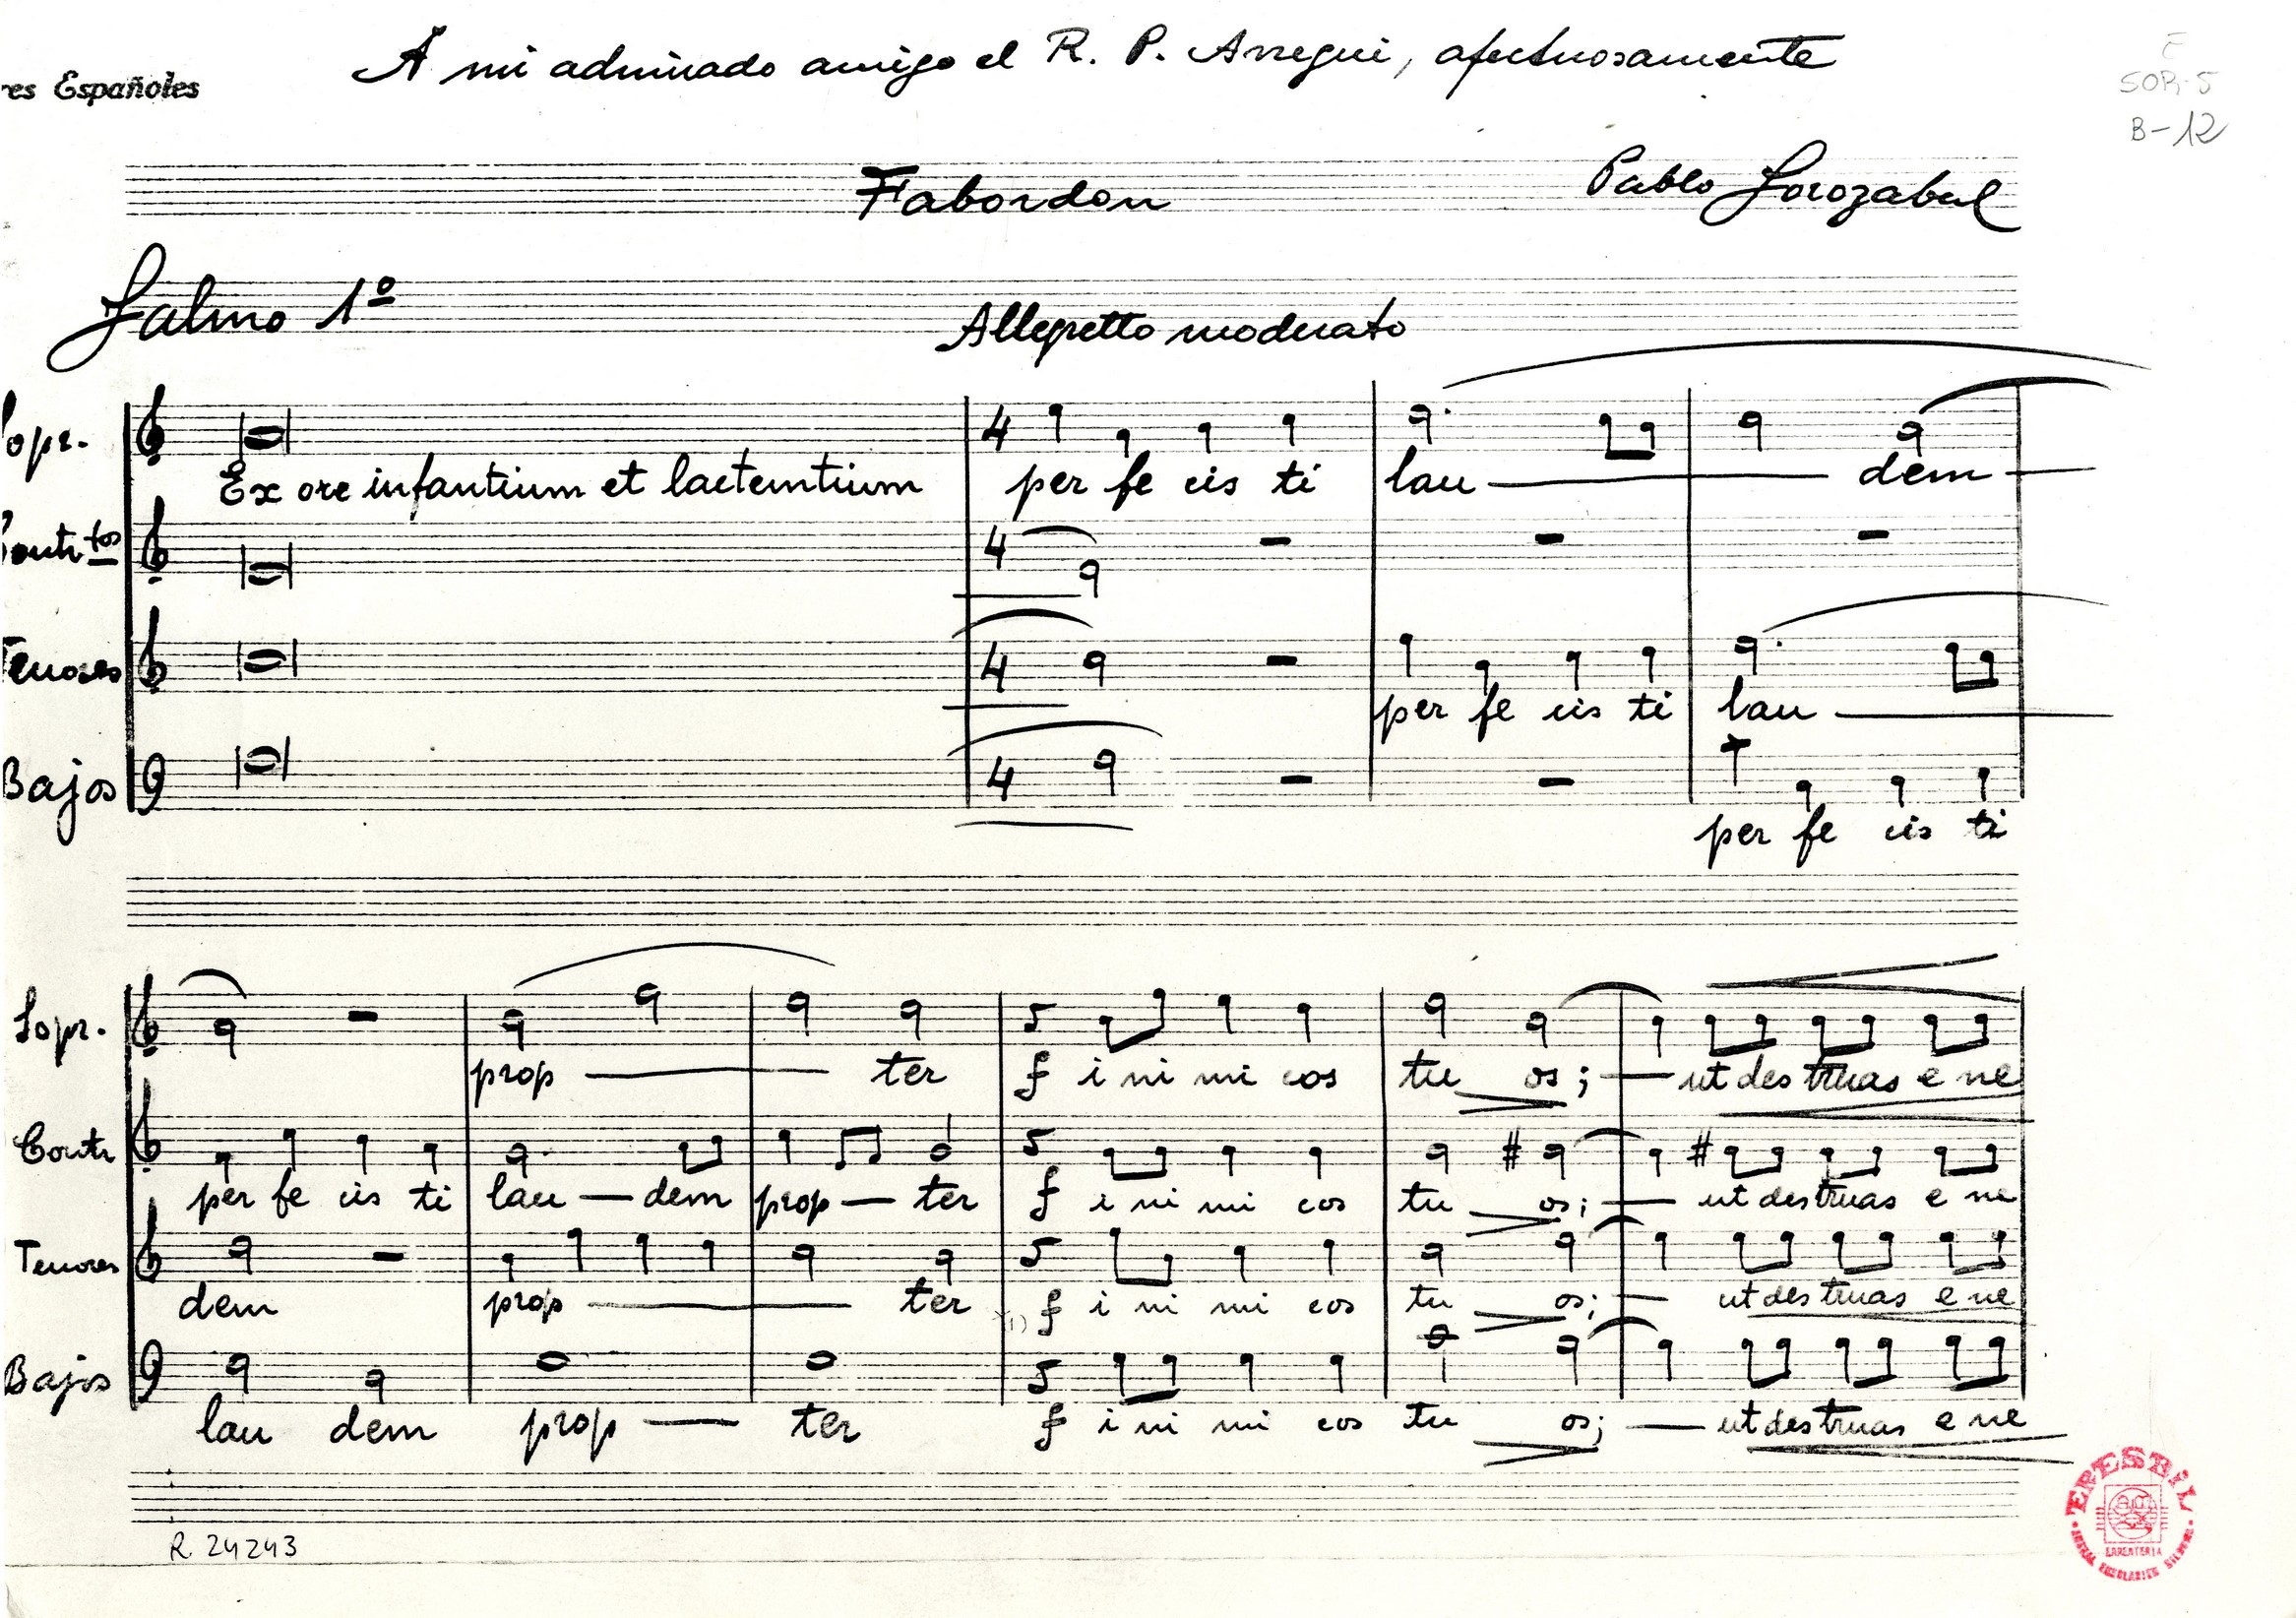 A mi admirado amigo el R. P. Arregui, afectuosamente
res Españoles
SOR-5
B-12
Fabordon
Pablo Sorozabal
Salmo 1º
Allegretto moderato
Sopr.
4
Ex ore infantium et lactemtium per fe cis ti lau dem
Contrtos
4
Tenores
4
per fe cis ti lau
Bajos
4
per fe cis ti
Sopr.
5
prop ter f i ni mi cos tu os; ut des truas e ne
Contr
5
per fe cis ti lau dem prop ter f i ni mi cos tu os; ut des truas e ne
Tenores
5
dem prop ter f i ni mi cos tu os; ut des truas e ne
Bajos
5
lau dem prop ter f i ni mi cos tu os; ut des truas e ne
R. 24243
ERESBIL
ERRENTERIA